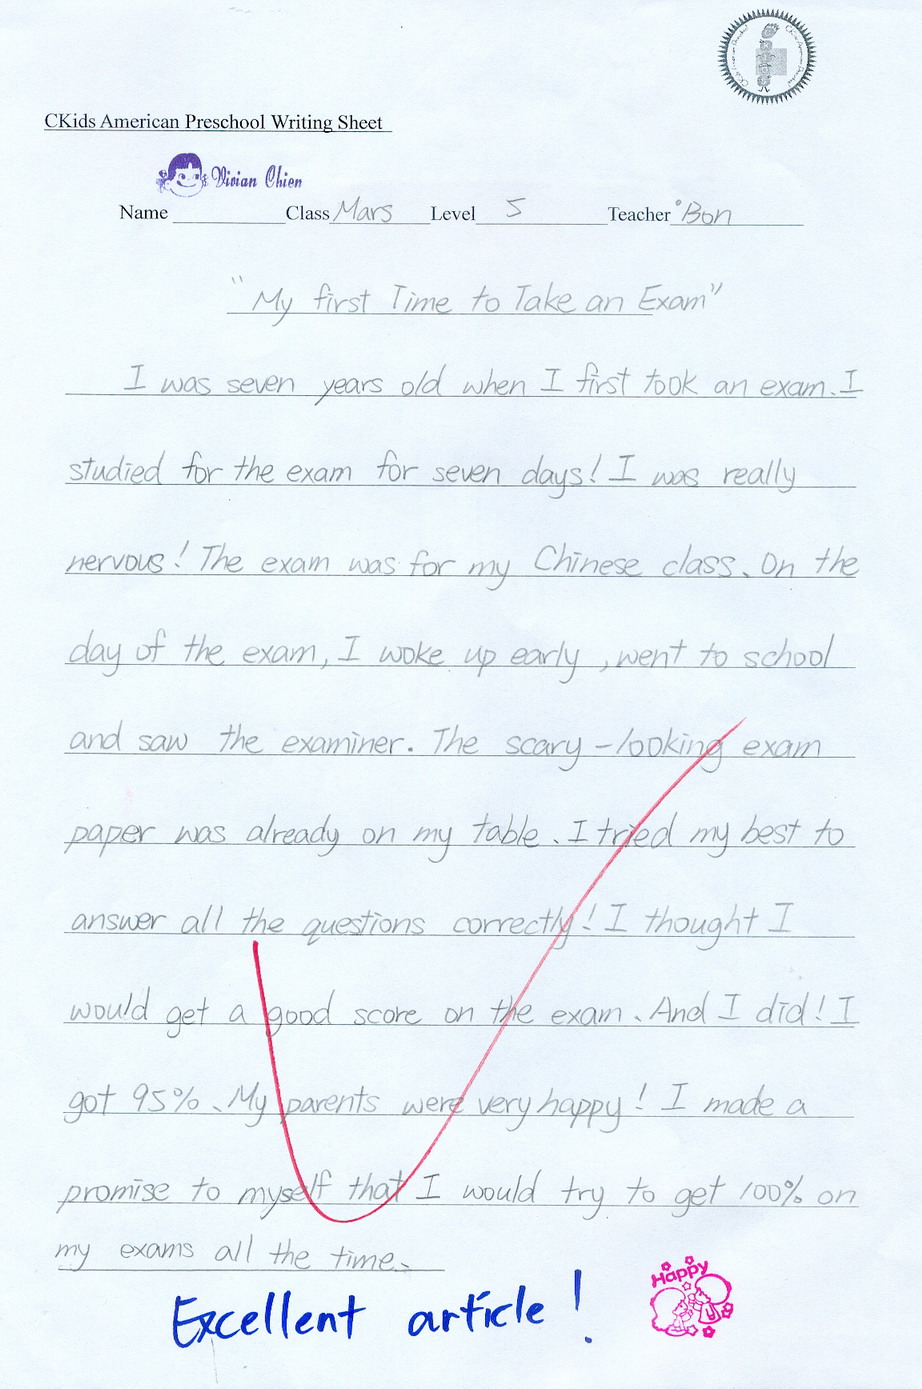 CKids American Preschool Writing Sheet
Vivian Chien
Name Class Mars Level 5 Teacher Bon
"My first Time to Take an Exam"
I was seven years old when I first took an exam. I
studied for the exam for seven days! I was really
nervous! The exam was for my Chinese class. On the
day of the exam, I woke up early, went to school
and saw the examiner. The scary-looking exam
paper was already on my table. I tried my best to
answer all the questions correctly! I thought I
would get a good score on the exam. And I did! I
got 95%. My parents were very happy! I made a
promise to myself that I would try to get 100% on
my exams all the time.
Excellent article!
Happy